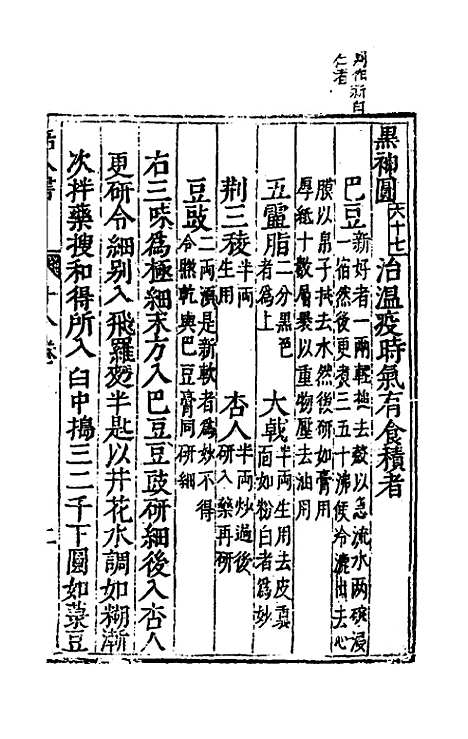 黑神圓六十七治溫疫時氣有食積者
巴豆新好者一兩輕搥去殼以急流水兩碗浸
一宿然後更煮三五十沸候冷漉出去心
膜以帛子拭去水然後研如膏用
厚紙十數層裹以重物壓去油用
五靈脂二分黑色者爲上 大戟半兩生用去皮
面如粉白者爲妙
荆三稜半兩生用 杏人半兩炒過後研入藥再研
豆豉二兩須是新軟者爲妙不得
令䐈乾與巴豆膏同研細
右三味爲極細末方入巴豆豆豉研細後入杏人
更研令細別入飛羅麪半匙以井花水調如糊漸
次拌藥搜和得所入臼中搗三二千下圓如菉豆
活人書 十八卷 二